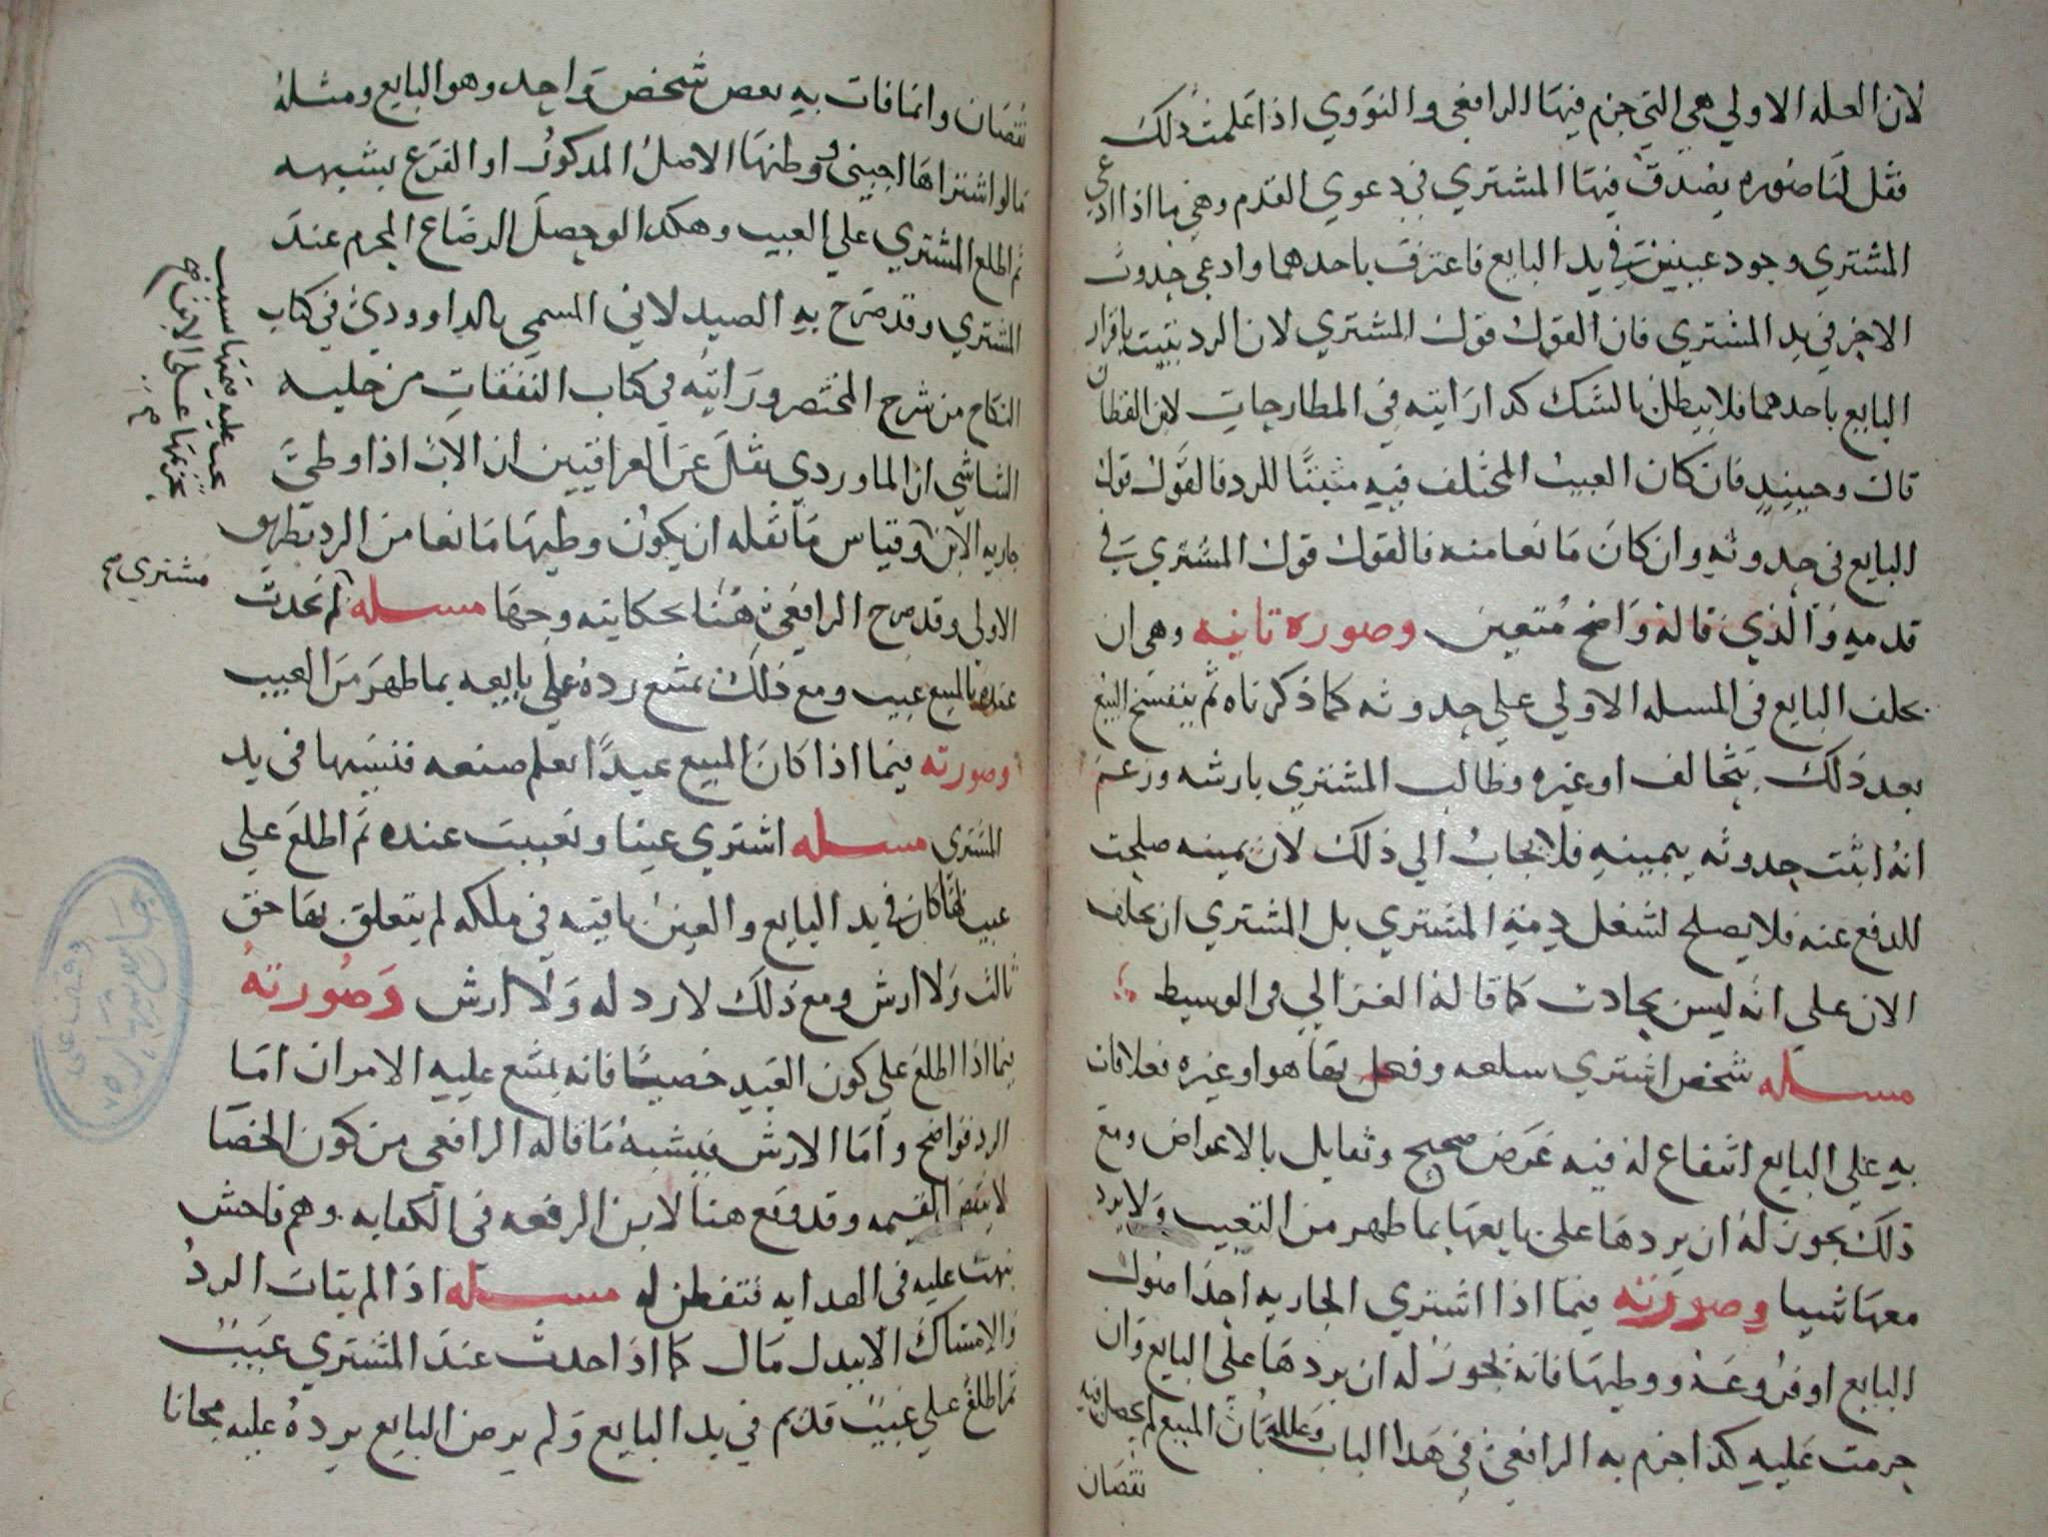 لان العله الاولي هي التي جزم فيها الرافعي والنووي اذا علمت ذلك
فقل لنا صوره يصدق فيها المشتري في دعوي القدم وهي ما اذا ادعي
المشتري وجود عيبين في يد البايع فاعترف باحدهما وادعي حدوث
الاخر في يد المشتري فان القول قول المشتري لان الرد يثبت باقرار
البايع باحدهما فلا يبطل بالشك كذا رايته في المطارحات لابن القطان
قال وحينيذ فان كان العيب المختلف فيه مثبتا للرد فالقول قول
البايع في حدوثه وان كان مانعا منه فالقول قول المشتري في
قدمه والذي قاله واضح متعين وصوره ثانيه وهي ان
يحلف البايع في المسله الاولي علي حدوثه كما ذكرناه ثم ينفسخ البيع
بعد ذلك بتحالف او غيره وطالب المشتري بارشه وزعم
انه اثبت حدوثه بيمينه فلا يجاب الي ذلك لان يمينه صلحت
للدفع عنه فلا يصلح لشغل ذمة المشتري بل المشتري ان يحلف
الان علي انه ليس بحادث كما قاله الغزالي في الوسيط
مسله شخص اشتري سلعه وفعل بها هو او غيره فعلا فات
به علي البايع انتفاع له فيه غرض صحيح وتقابل بالاعواض ومع
ذلك يجوز له ان يردها علي بايعها بما ظهر من التعييب ولا يرد
معها شيا وصورته فيما اذا اشتري الجاريه احد اصول
البايع او فروعه ووطيها فانه يجوز له ان يردها علي البايع وان
حرمت عليه كذا جزم به الرافعي في هذا الباب وعلله بان المبيع لم يحصل فيه
نقصان
نقصان وانما فات به بعض شخص واحد وهو البايع ومثله
ما لو اشتراها اجنبي ووطيها الاصل المذكور او الفرع بشبهه
ثم اطلع المشتري علي العيب وهكذا لو حصل الرضاع المحرم عند
المشتري وقد صرح به الصيدلاني المسمي بالداوودي في كتاب
النكاح من شرح المختصر ورايته في كتاب النفقات من حليه
الشاشي ان الماوردي نقل عن العراقيين ان الاب اذا وطي
جاريه الابن وقياس ما نقله ان يكون وطيها مانعا من الرد بطريق
الاولي وقد صرح الرافعي هنا بحكايته وجها مسله لم يحدث
عنده بالمبيع عيب ومع ذلك يمتنع رده علي بايعه بما ظهر من العيب
وصورته فيما اذا كان المبيع عبدا تعلم صنعه فنسيها في يد
المشتري مسله اشتري عينا وتعيبت عنده ثم اطلع علي
عيب بها كان في يد البايع والعين باقيه في ملكه لم يتعلق بها حق
ثالث ولا ارش ومع ذلك لا رد له ولا ارش وصورته
فيما اذا اطلع علي كون العبد خصيا فانه يمتنع عليه الامران اما
الرد فواضح واما الارش فيشبه ما قاله الرافعي من كون الخصا
لا ينقص القيمه وقد وقع هنا لابن الرفعه في الكفايه وهم فاحش
نبهت عليه في الهدايه فتفطن له مسله اذا لم يتات الرد
والامساك الا ببدل مال كما اذا حدث عند المشتري عيب
ثم اطلع علي عيب قديم في يد البايع ولم يرض البايع يرده عليه مجانا
مشتري صح
وقف علي